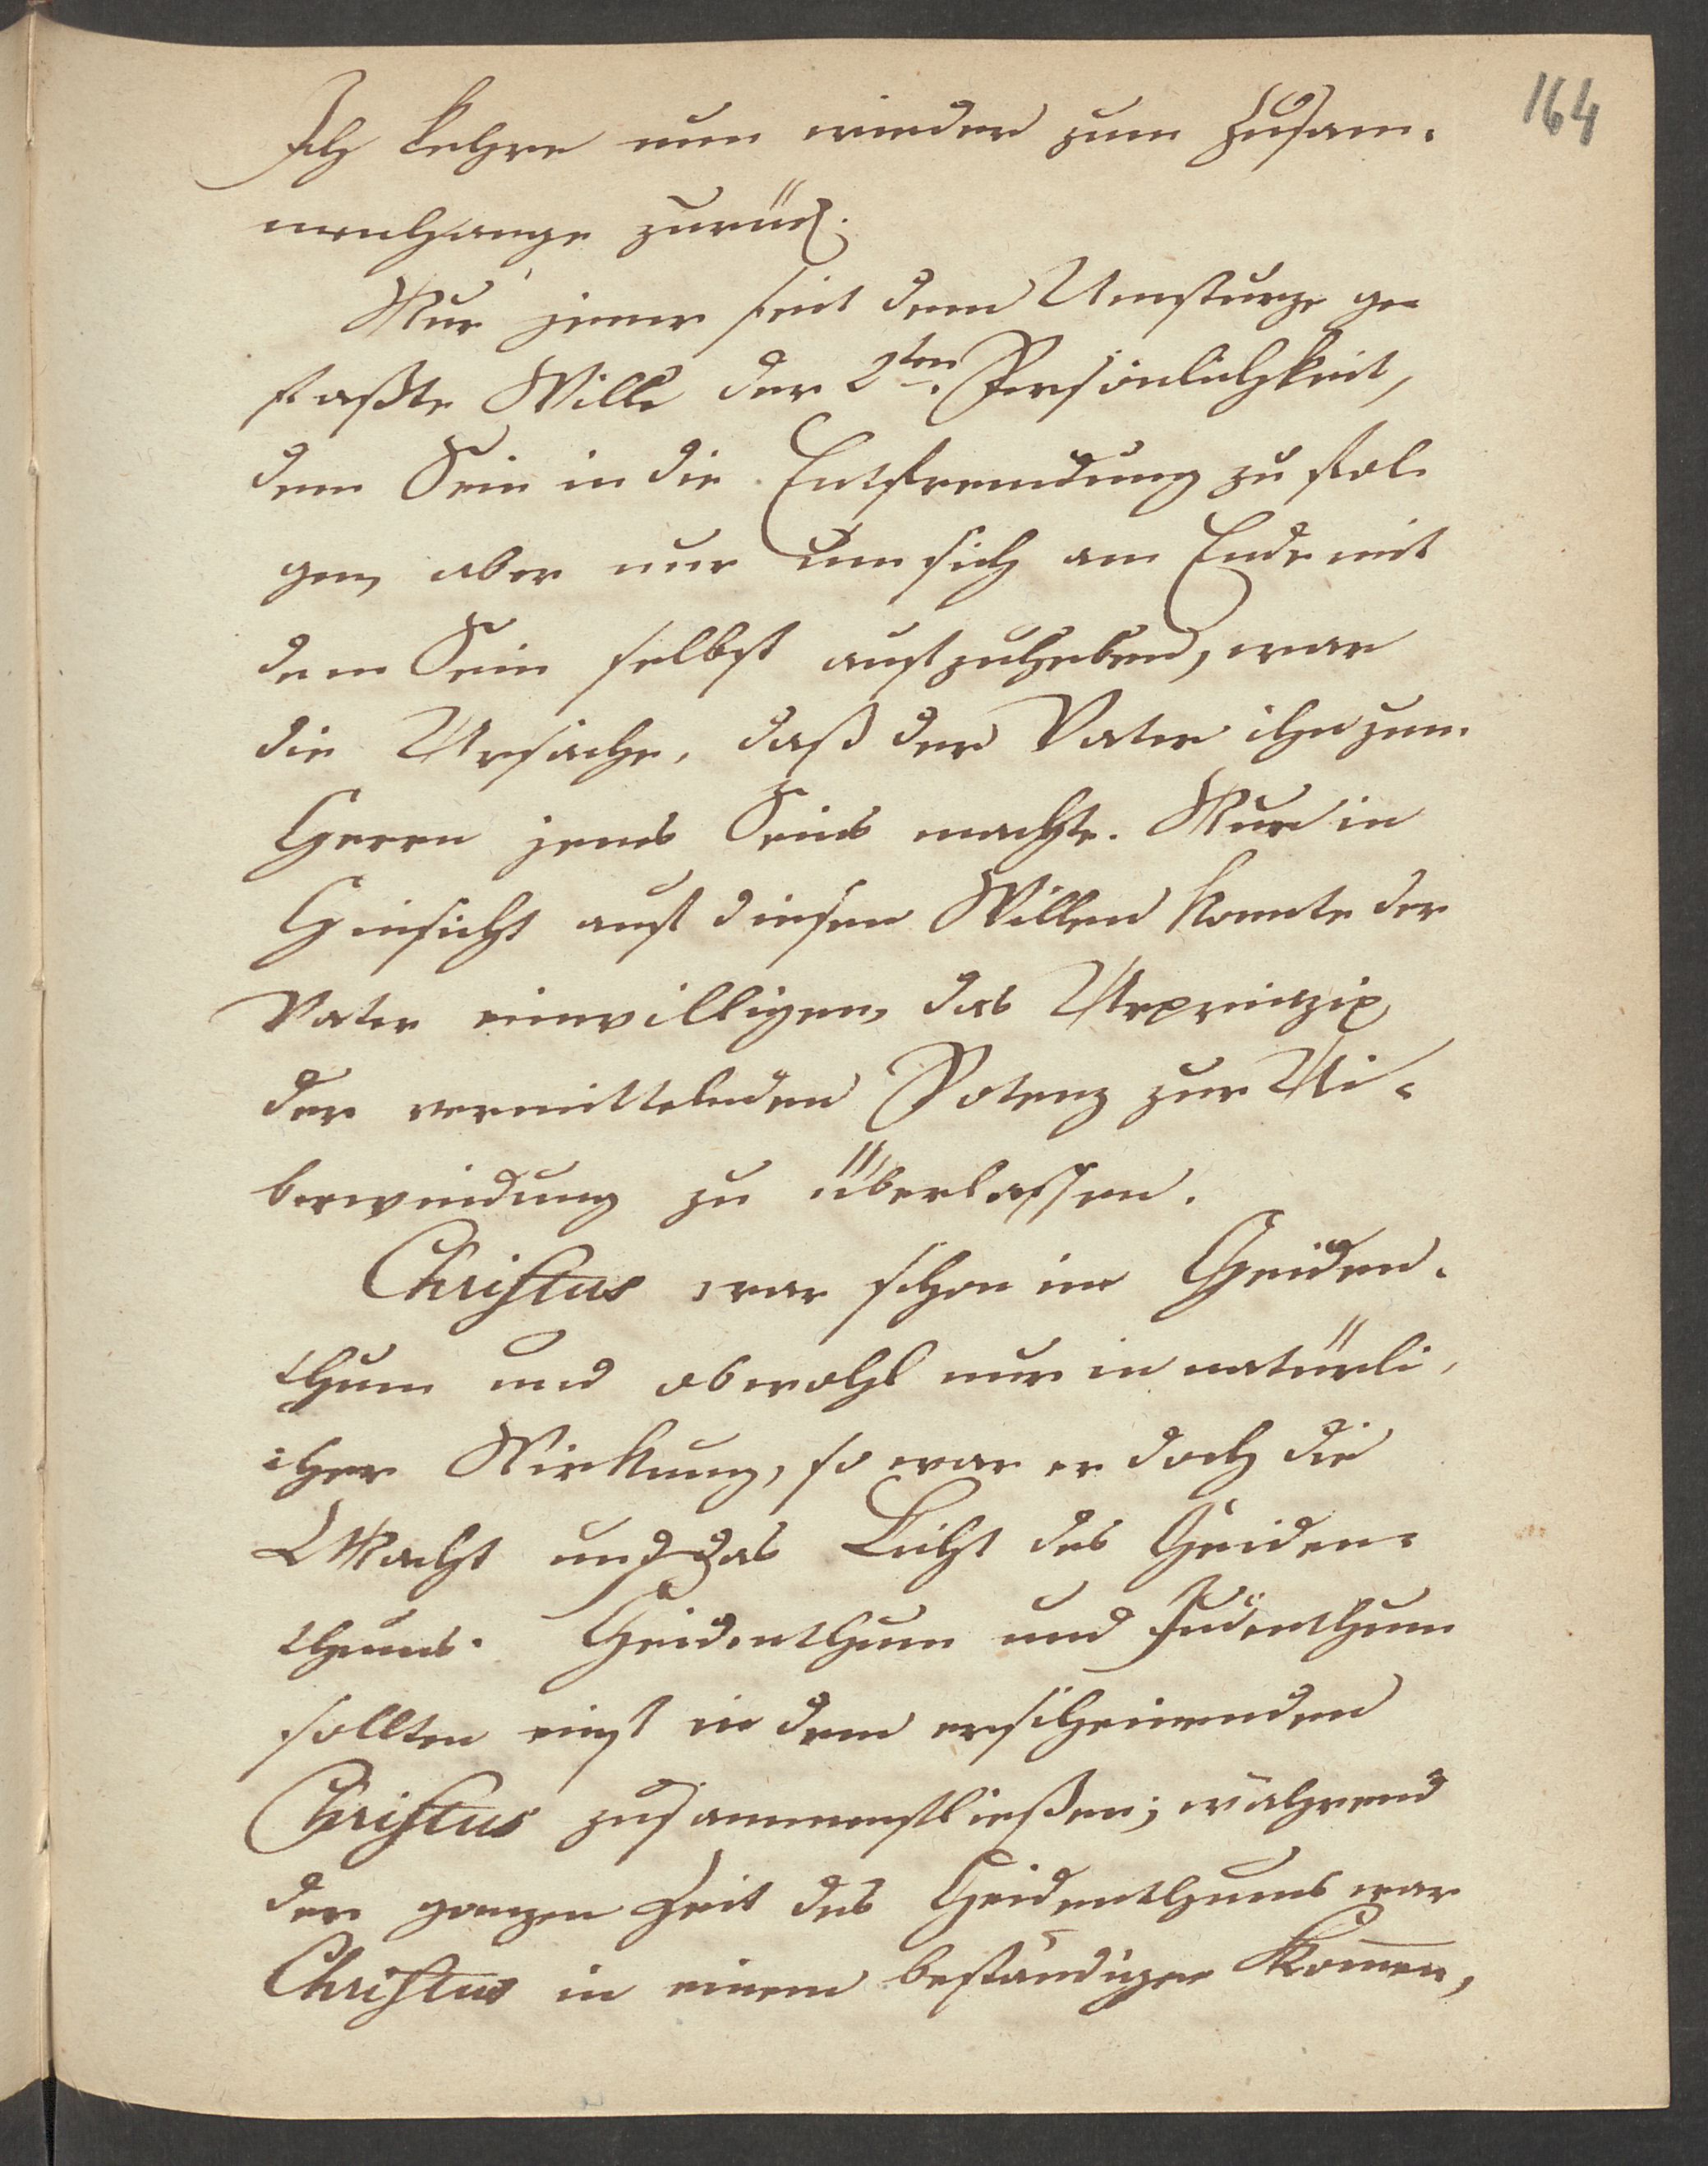 164
Ich kehre nun wieder zum Zusam-
menhange zurück.
Nur jener seit dem Umsturze ge-
faßte Wille der 2ten Persönlichkeit,
dem Sein in die Entfremdung zu fol-
gen, aber nur um sich am Ende mit
dem Sein selbst aufzuheben, war
die Ursache, daß der Vater ihn zum
Herrn jenes Seins machte. Nur in
Hinsicht auf diesen Willen konnte der
Vater einwilligen, das Urprinzip
der vermittelnden Potenz zur Ui-
berwindung zu überlassen.
Christus war schon im Heiden-
thum und obwohl nur in natürli-
cher Wirkung, so war er doch die
Macht und das Licht des Heiden-
thums. Heidenthum und Judenthum
sollten einst in dem erscheinenden
Christus zusammenfließen; während
der ganzen Zeit des Heidenthums war
Christus in einem beständigen Kom̄en,